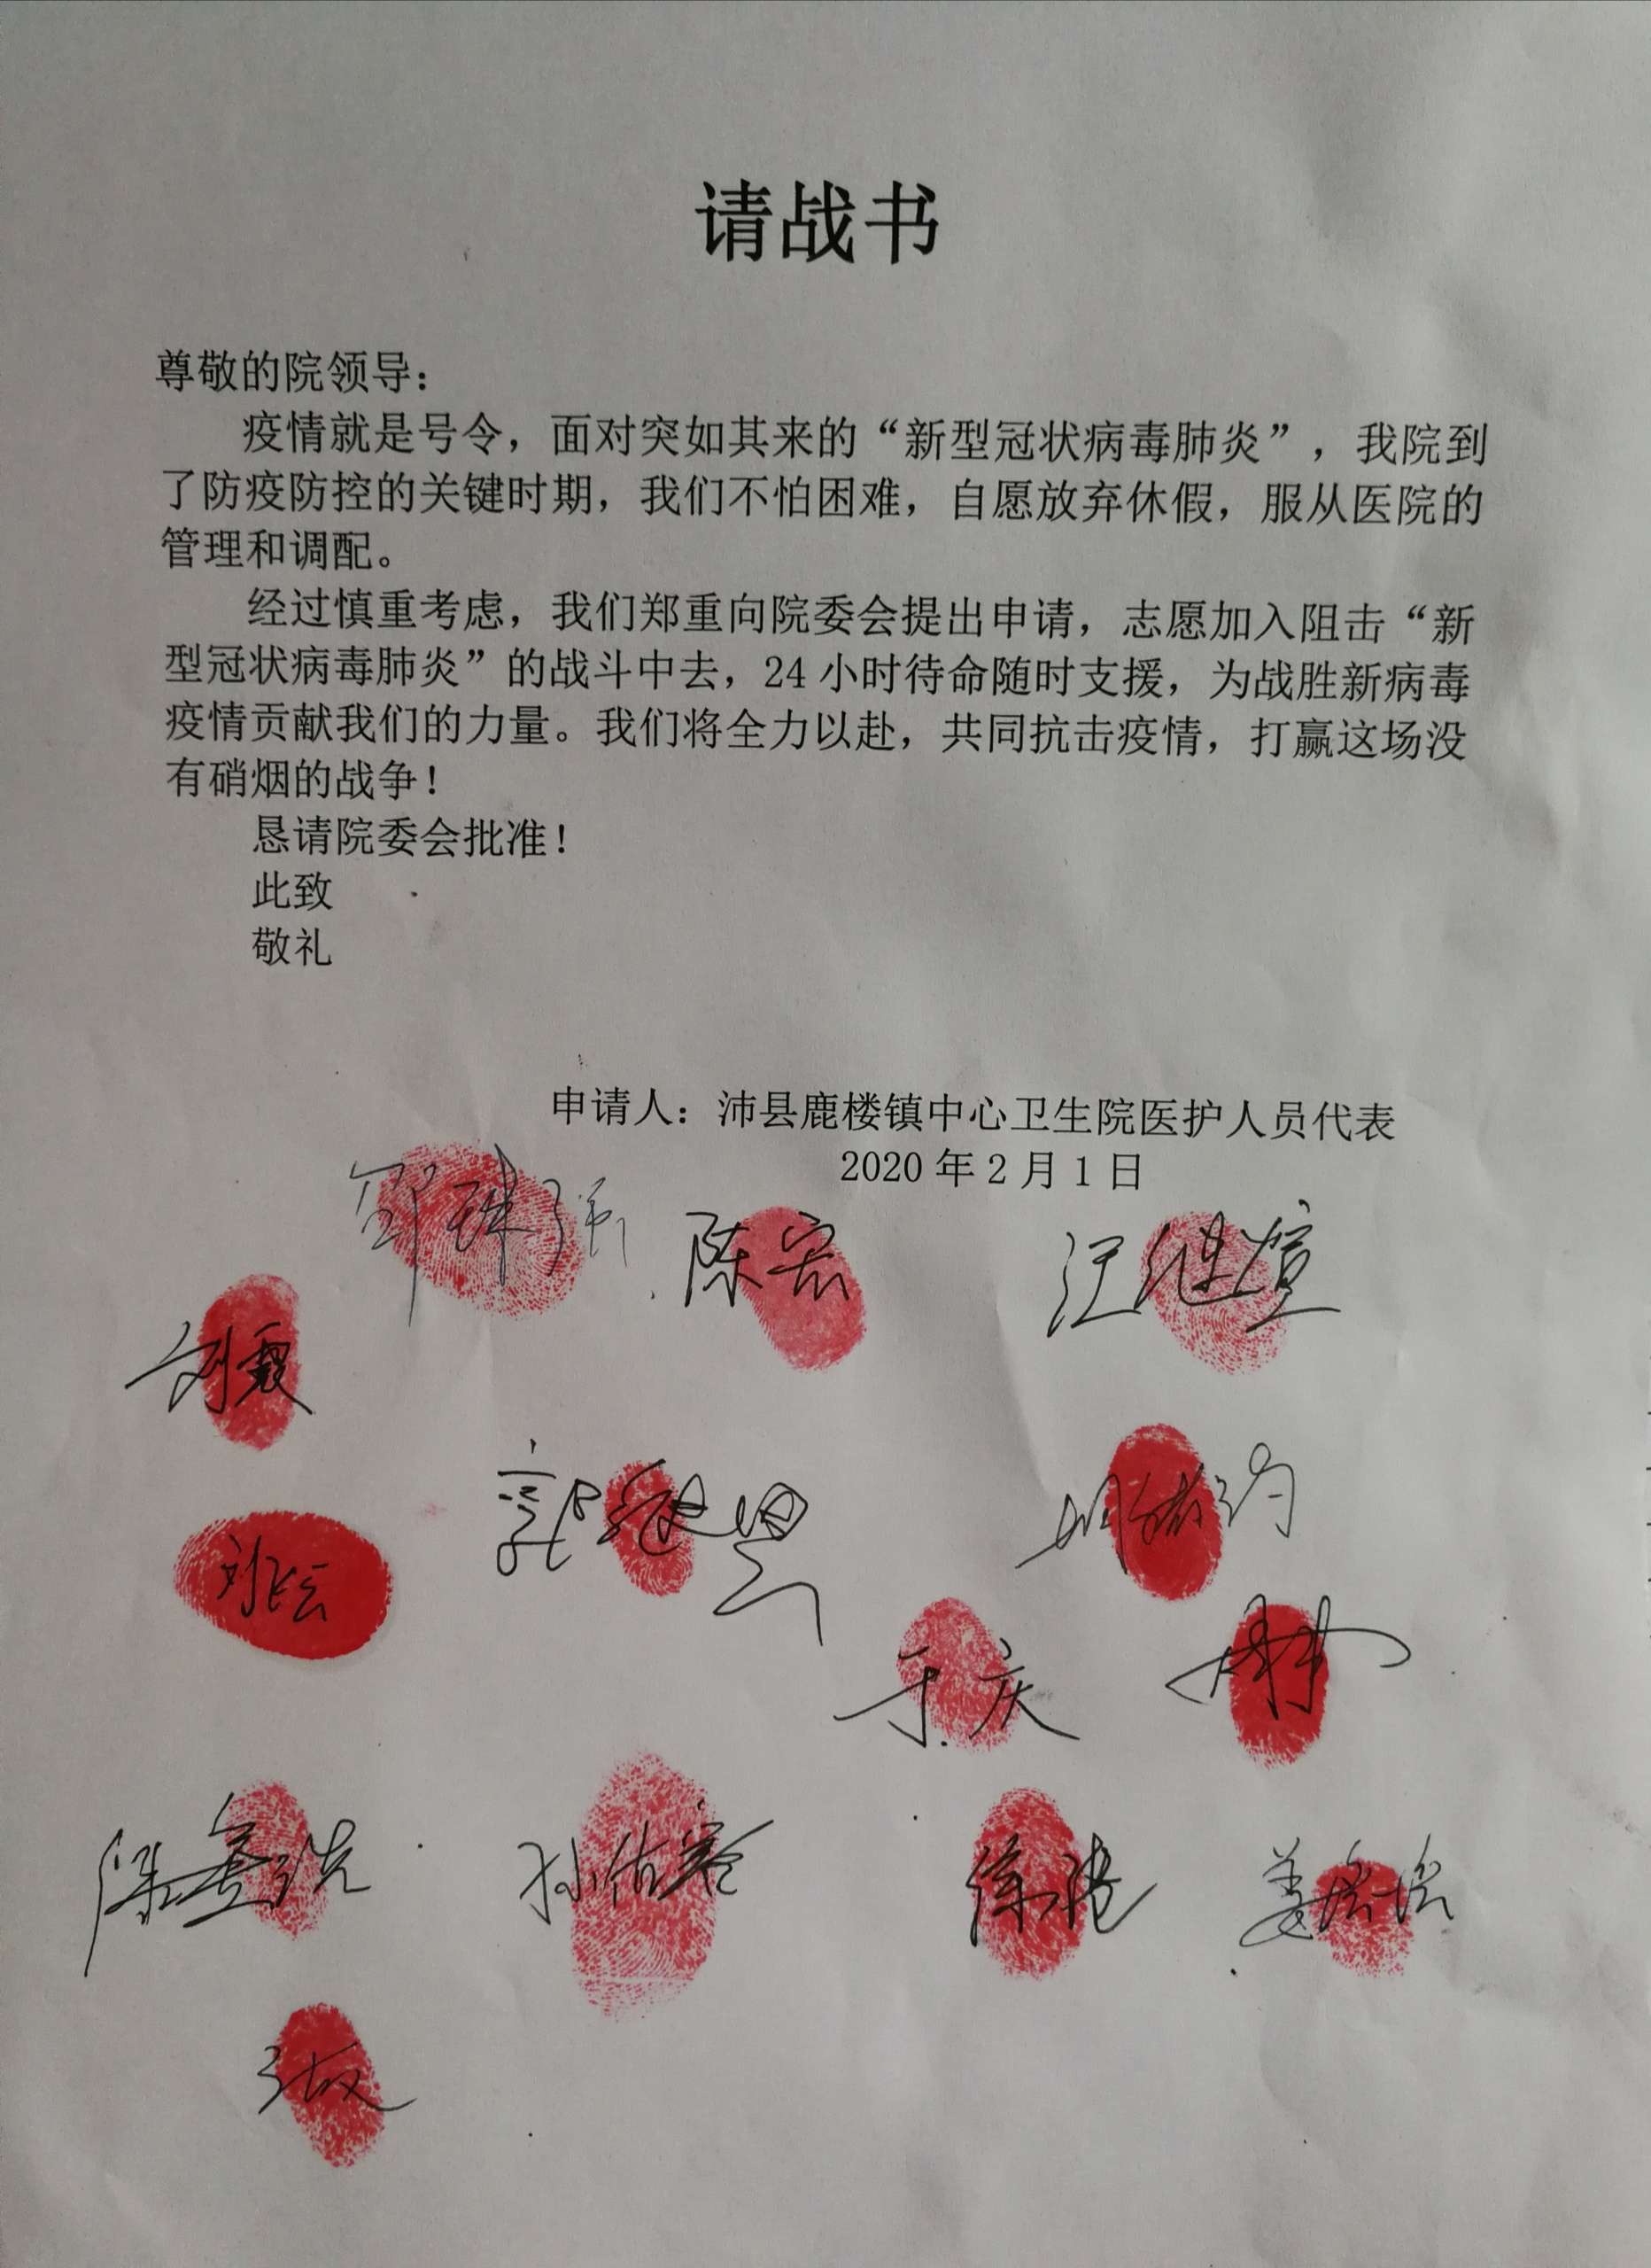 请战书
尊敬的院领导：
疫情就是号令，面对突如其来的“新型冠状病毒肺炎”，我院到
了防疫防控的关键时期，我们不怕困难，自愿放弃休假，服从医院的
管理和调配。
经过慎重考虑，我们郑重向院委会提出申请，志愿加入阻击“新
型冠状病毒肺炎”的战斗中去，24小时待命随时支援，为战胜新病毒
疫情贡献我们的力量。我们将全力以赴，共同抗击疫情，打赢这场没
有硝烟的战争！
恳请院委会批准！
此致
敬礼
申请人：沛县鹿楼镇中心卫生院医护人员代表
2020年2月1日
陈宏
汪继煊
刘霞
刘飞云
于庆